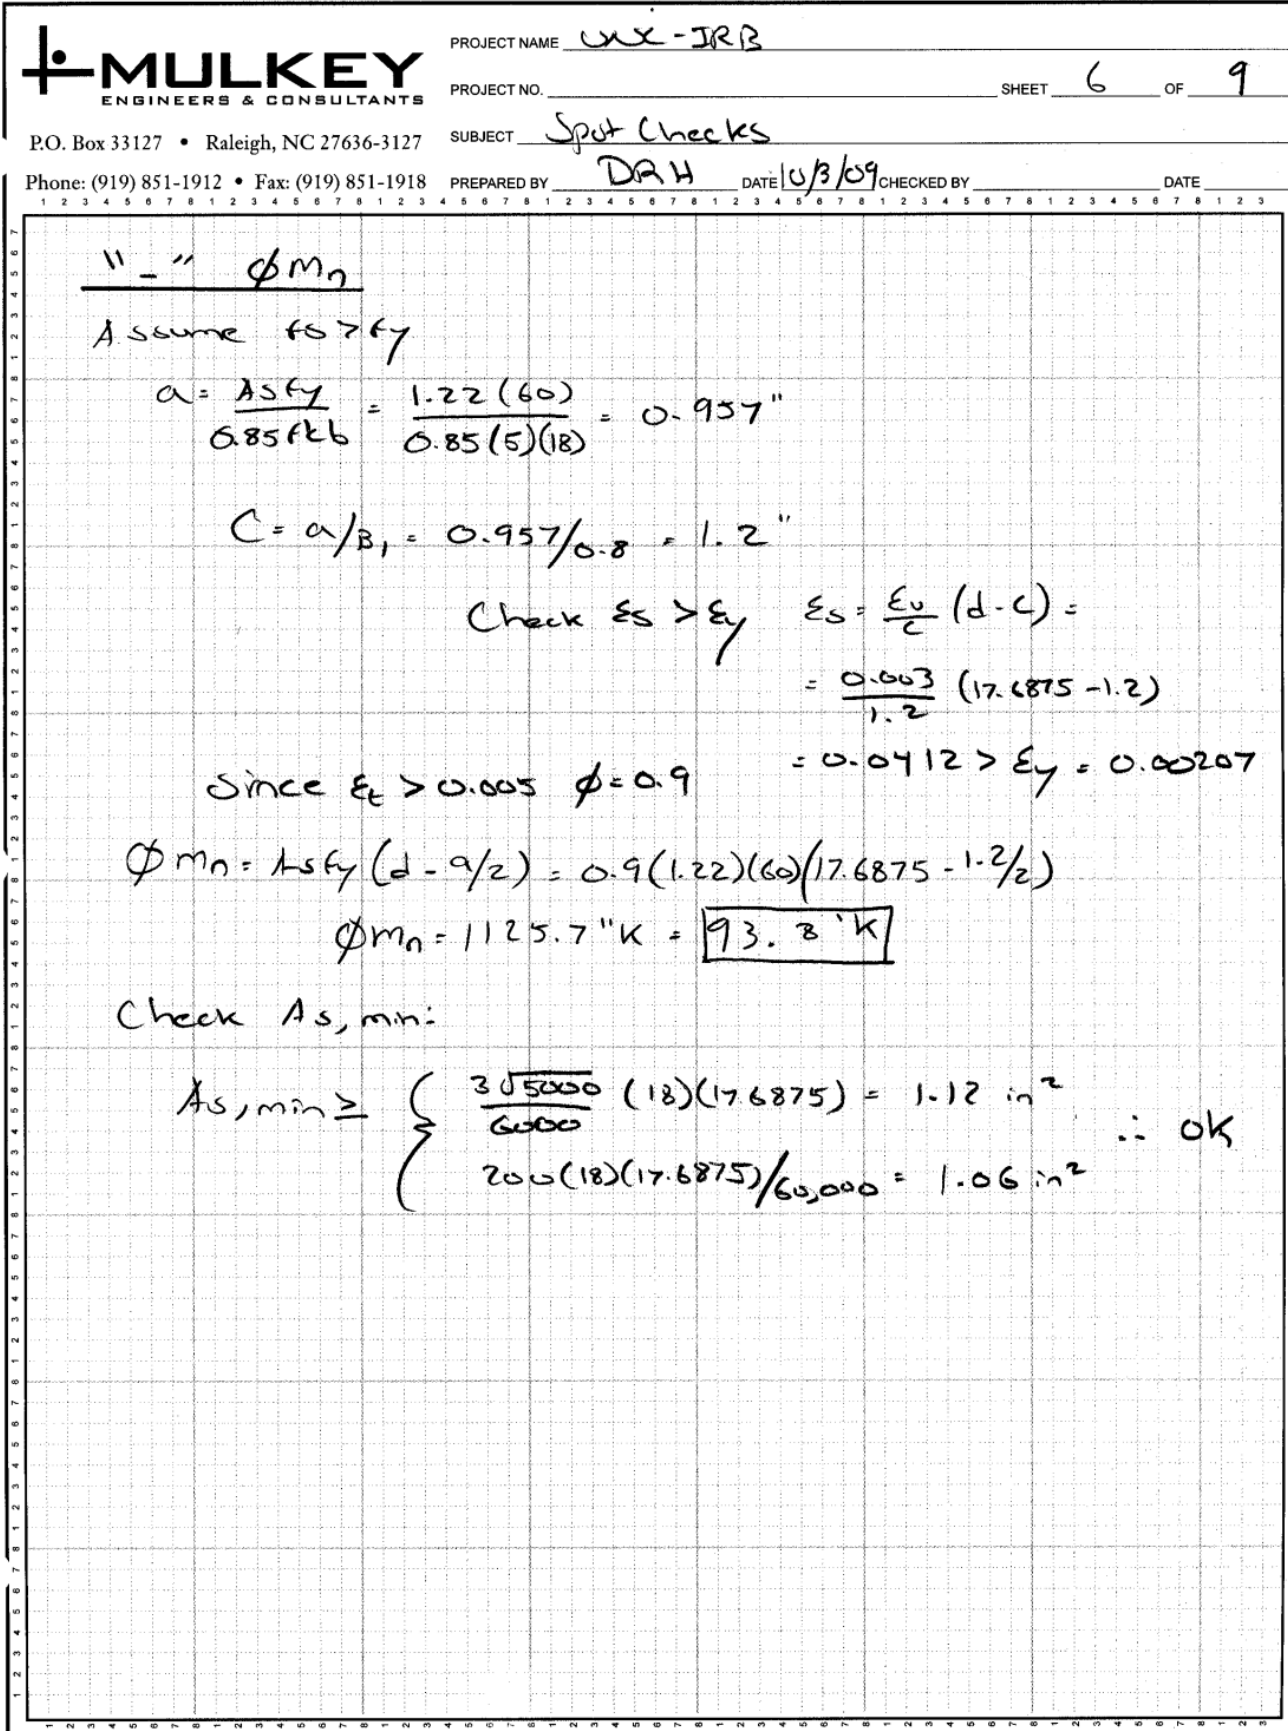 MULKEY
ENGINEERS & CONSULTANTS
P.O. Box 33127 • Raleigh, NC 27636-3127
Phone: (919) 851-1912 • Fax: (919) 851-1918
PROJECT NAME -IRB
PROJECT NO. SHEET 6 OF 9
SUBJECT Spot Checks
PREPARED BY DRH DATE 10/3/09 CHECKED BY DATE
"-" φMn
Assume fs > fy
a = Asfy / 0.85f'cb = 1.22(60) / 0.85(5)(18) = 0.957"
C = a/B1 = 0.957/0.8 = 1.2"
Check εs > εy εs = εu/c (d-c) =
= 0.003/1.2 (17.6875-1.2)
= 0.0412 > εy = 0.00207
Since εt > 0.005 φ=0.9
φMn = Asfy(d-a/2) = 0.9(1.22)(60)(17.6875-1.2/2)
φMn = 1125.7"K = 93.8'K
Check As,min:
As,min ≥ { 3√5000/6000 (18)(17.6875) = 1.12 in²
200(18)(17.6875)/60,000 = 1.06 in²
∴ OK